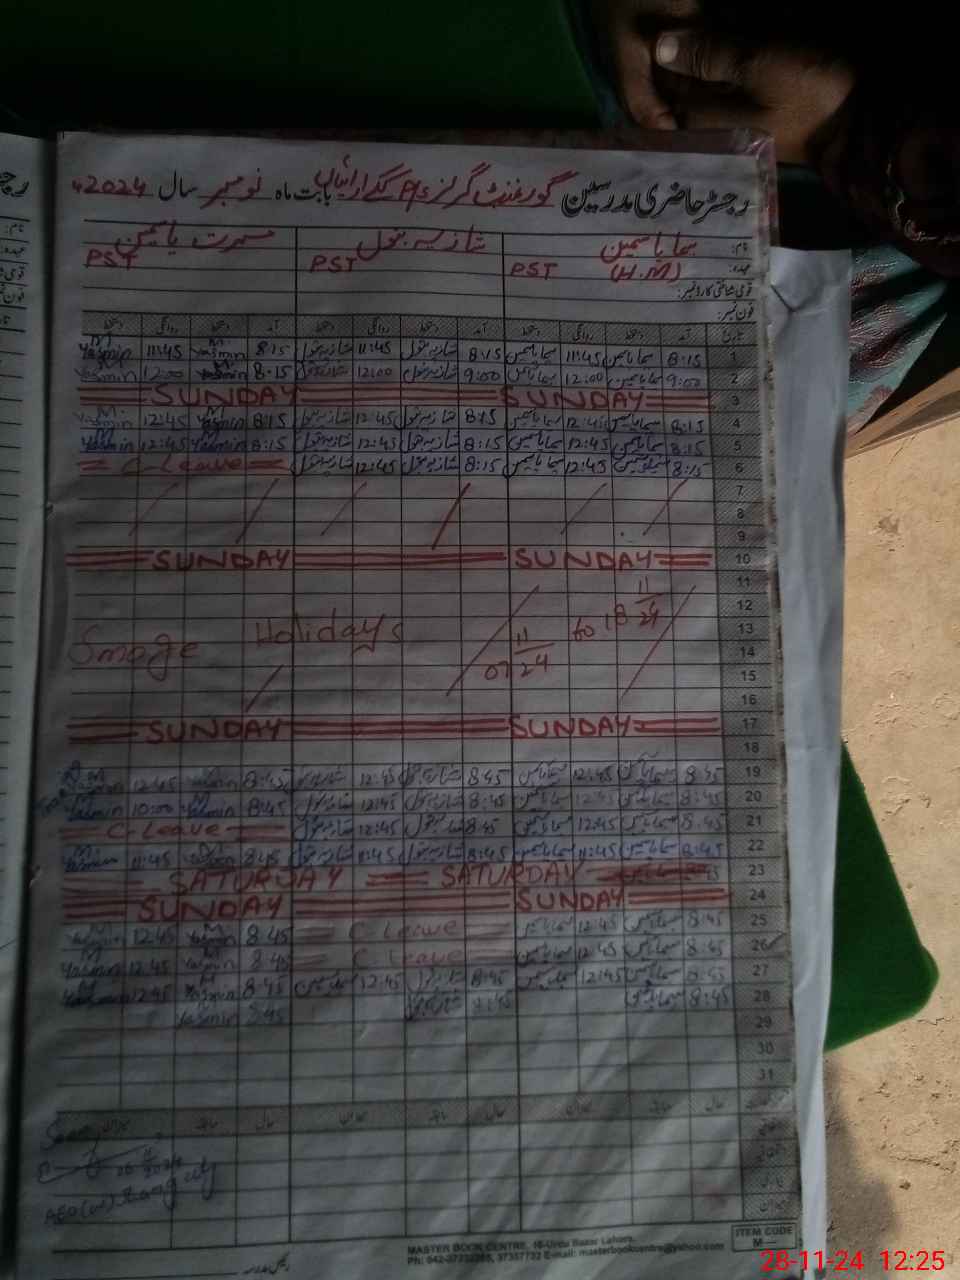 رجسٹر حاضری مدرسین گورنمنٹ گرلز P/S بابت ماہ نومبر سال 2024ء
نام: ہما یاسمین شازیہ بتول مسرت یاسمین
عہدہ: PST (H.M) PST PST
قومی شناختی کارڈ نمبر:
فون نمبر:
تاریخ آمد دستخط روانگی دستخط آمد دستخط روانگی دستخط آمد دستخط روانگی دستخط
1 8:15 ہما یاسمین 11:45 ہما یاسمین 8:15 شازیہ بتول 11:45 شازیہ بتول 8:15 Yasmin 11:45 Yasmin
2 9:00 ہما یاسمین 12:00 ہما یاسمین 9:00 شازیہ بتول 12:00 شازیہ بتول 8:15 Yasmin 12:00 Yasmin
3 SUNDAY SUNDAY
4 8:15 ہما یاسمین 12:45 ہما یاسمین 8:15 شازیہ بتول 12:45 شازیہ بتول 8:15 Yasmin 12:45 Yasmin
5 8:15 ہما یاسمین 12:45 ہما یاسمین 8:15 شازیہ بتول 12:45 شازیہ بتول 8:15 Yasmin 12:45 Yasmin
6 8:15 ہما یاسمین 12:45 ہما یاسمین 8:15 شازیہ بتول 12:45 شازیہ بتول C-Leave
7
8
9
10 SUNDAY SUNDAY
11
12
13 Smoge Holidays 07 11/24 to 18 11/24
14
15
16
17 SUNDAY SUNDAY
18
19 8:45 ہما یاسمین 12:45 ہما یاسمین 8:45 شازیہ بتول 12:45 شازیہ بتول 8:45 Yasmin 12:45 Yasmin
20 8:45 ہما یاسمین 12:45 ہما یاسمین 8:45 شازیہ بتول 12:45 شازیہ بتول 8:45 Yasmin 10:00 Yasmin
21 8:45 ہما یاسمین 12:45 ہما یاسمین 8:45 شازیہ بتول 12:45 شازیہ بتول C-Leave
22 8:45 ہما یاسمین 11:45 ہما یاسمین 8:45 شازیہ بتول 11:45 شازیہ بتول 8:45 Yasmin 11:45 Yasmin
23 SATURDAY SATURDAY
24 SUNDAY SUNDAY
25 8:45 ہما یاسمین 12:45 ہما یاسمین C Leave 8:45 Yasmin 12:45 Yasmin
26 8:45 ہما یاسمین 12:45 ہما یاسمین C Leave 8:45 Yasmin 12:45 Yasmin
27 8:45 ہما یاسمین 12:45 ہما یاسمین 8:45 شازیہ بتول 12:45 8:45 Yasmin 12:45 Yasmin
28 8:45 ہما یاسمین 8:45 شازیہ بتول 8:45 Yasmin
29
30
31
میزان سابقہ حال میزان سابقہ حال میزان سابقہ حال
26 11/2024
AEO (w)
رئیس مدرسہ
MASTER BOOK CENTRE, 16-Urdu Bazar Lahore.
E-mail: masterbookcentre@yahoo.com
ITEM CODE
M—
28-11-24 12:25